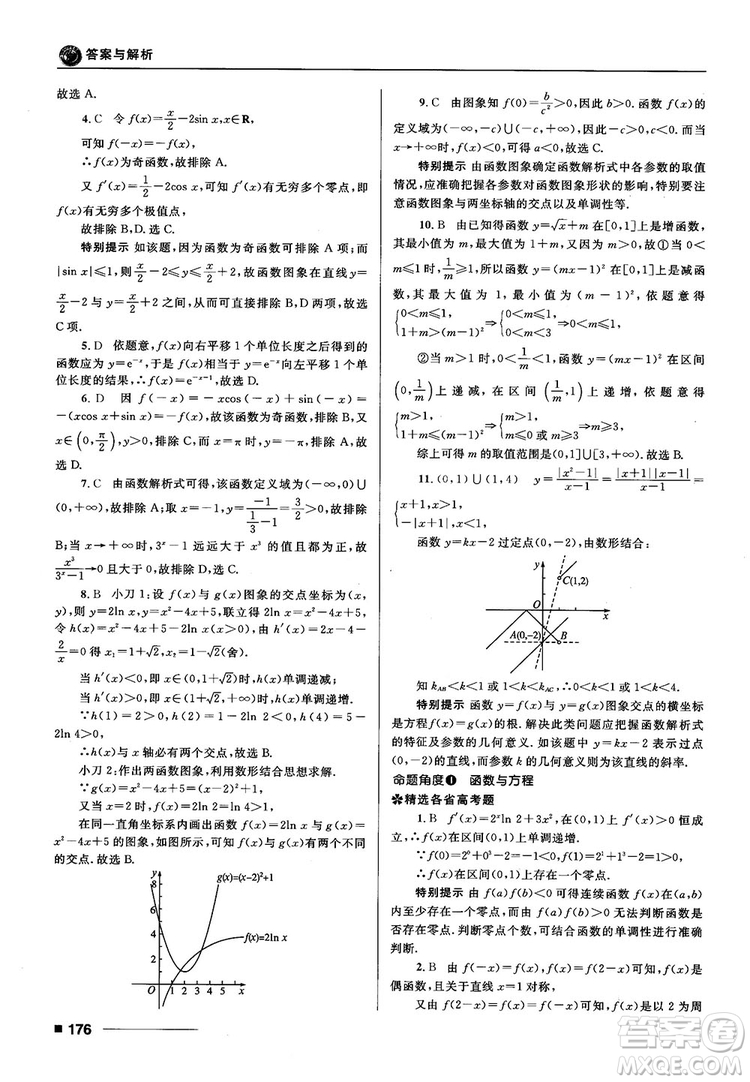 答案与解析
故选 A.
4. C 令 f(x)=x/2-2sin x,x∈R,
可知 f(-x)=-f(x),
∴f(x)为奇函数,故排除 A.
又 f′(x)=1/2-2cos x,可知 f′(x)有无穷多个零点,即
f(x)有无穷多个极值点,
故排除 B,D. 选 C.
特别提示 如该题,因为函数为奇函数可排除 A 项;而
|sin x|≤1,则x/2-2≤y≤x/2+2,故函数图象在直线 y=
x/2-2 与 y=x/2+2 之间,从而排除 B,D 两项,故选
C 项.
5. D 依题意,f(x)向右平移 1 个单位长度之后得到的
函数应为 y=e⁻ˣ,于是 f(x)相当于 y=e⁻ˣ向左平移 1 个单
位长度的结果,∴f(x)=e⁻ˣ⁻¹,故选 D.
6. D 因 f(-x)=-xcos(-x)+sin(-x)=
-(xcos x+sin x)=-f(x),故该函数为奇函数,排除 B,又
x∈(0,π/2),y>0,排除 C,而 x=π 时,y=-π,排除 A,故
选 D.
7. C 由函数解析式可得,该函数定义域为(-∞,0)∪
(0,+∞),故排除 A;取 x=-1,y=(-1)/(1/3-1)=3/2>0,故再排除
B;当 x→+∞时,3ˣ-1 远远大于 x³ 的值且都为正,故
x³/(3ˣ-1)→0 且大于 0,故排除 D,选 C.
8. B 小刀 1:设 f(x)与 g(x)图象的交点坐标为(x,
y),则 y=2ln x,y=x²-4x+5,联立得 2ln x=x²-4x+5,
令 h(x)=x²-4x+5-2ln x(x>0),由 h′(x)=2x-4-
2/x=0 得 x₁=1+√2,x₂=1-√2(舍).
当 h′(x)<0,即 x∈(0,1+√2)时,h(x)单调递减;
当 h′(x)>0,即 x∈(1+√2,+∞)时,h(x)单调递增.
∵h(1)=2>0,h(2)=1-2ln 2<0,h(4)=5-
2ln 4>0,
∴h(x)与 x 轴必有两个交点,故选 B.
小刀 2:作出两函数图象,利用数形结合思想求解.
∵g(x)=x²-4x+5=(x-2)²+1,
又当 x=2 时,f(x)=2ln 2=ln 4>1,
在同一直角坐标系内画出函数 f(x)=2ln x 与 g(x)=
x²-4x+5 的图象,如图所示,可知 f(x)与 g(x)有两个不同
的交点. 故选 B.
y
g(x)=(x-2)²+1
8
6
f(x)=2ln x
4
2
O 1 2 3 4 5 x
176
9. C 由图象知 f(0)=b/c²>0,因此 b>0. 函数 f(x)的
定义域为(-∞,-c)∪(-c,+∞),因此-c>0,c<0. 而当
x→+∞时,f(x)<0,可得 a<0,故选 C.
特别提示 由函数图象确定函数解析式中各参数的取值
情况,应准确把握各参数对函数图象形状的影响,特别要注
意函数图象与两坐标轴的交点以及单调性等.
10. B 由已知得函数 y=√x+m 在[0,1]上是增函数,
其最小值为 m,最大值为 1+m,由题意知,故①当 0<
m≤1 时,1/m≥1,函数 y=(mx-1)² 在[0,1]上是减函
数,其最大值为 1,最小值为 (m-1)², 依题意得
{0<m≤1, 1+m>(m-1)²⇒{0<m≤1, 0<m<3⇒0<m≤1.
②当 m>1 时,0<1/m<1,函数 y=(mx-1)² 在区间
(0,1/m)上递减,在区间(1/m,1)上递增,依题意得
{m>1, 1+m≤(m-1)²⇒{m>1, m≤0或m≥3⇒m≥3.
综上可得 m 的取值范围是(0,1]∪[3,+∞). 故选 B.
11. (0,1)∪(1,4) y=|x²-1|/(x-1)=|x+1||x-1|/(x-1)=
{x+1,x>1, -|x+1|,x<1.
函数 y=kx-2 过定点(0,-2),由数形结合:
y
C(1,2)
O x
A(0,-2) B
知 kAB<k<1 或 1<k<kAC,∴0<k<1 或 1<k<4.
特别提示 函数 y=f(x)与 y=g(x)图象交点的横坐标
为方程 f(x)=g(x)的根. 解决此类问题应把握函数解析式
的特征及参数的几何意义. 如函数 y=kx-2,表示过定点
(0,-2)的直线,而参数 k 的几何意义为该直线的斜率.
命题角度❶ 函数与方程
✽精选各省高考题
1. B f′(x)=2ˣln 2+3x²,在(0,1)上 f′(x)>0 恒成
立,∴f(x)在区间(0,1)上单调递增.
∵f(0)=2⁰+0-2=-1<0,f(1)=2+1-2=1>0,
∴f(x)在区间(0,1)上存在一个零点.
特别提示 由 f(a)f(b)<0 可得连续函数 f(x)在(a,b)
内至少存在一个零点,而由 f(a)f(b)>0 无法判断函数是
否存在零点. 零点个数的确定,可结合函数的单调性进行准确
判断.
2. B 由 f(-x)=f(x),f(x)=f(2-x)可知,f(x)是
偶函数,且关于直线 x=1 对称,
又由 f(2-x)=f(x)=f(-x)可知,f(x)是以 2 为周
答案圈